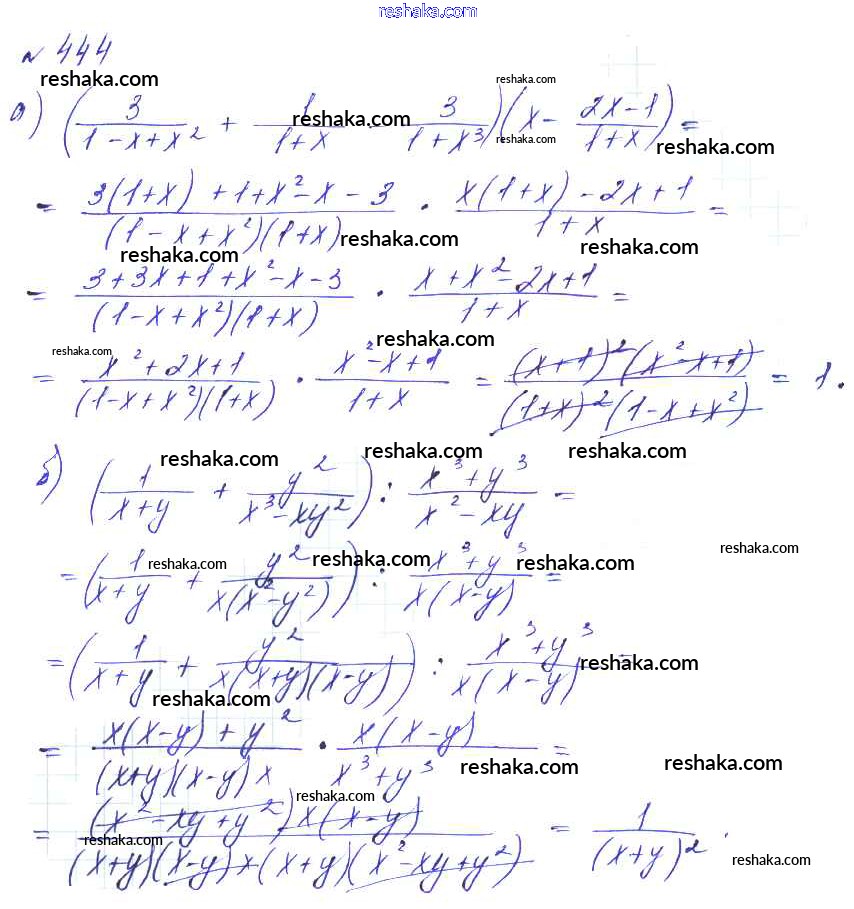 reshaka.com
№ 444
reshaka.com reshaka.com
а) (3/(1-x+x²) + 1/(1+x) - 3/(1+x³))(x - (2x-1)/(1+x)) =
reshaka.com reshaka.com reshaka.com
= (3(1+x)+1+x²-x-3)/((1-x+x²)(1+x)) · (x(1+x)-2x+1)/(1+x) =
reshaka.com reshaka.com reshaka.com
= (3+3x+1+x²-x-3)/((1-x+x²)(1+x)) · (x+x²-2x+1)/(1+x) =
reshaka.com reshaka.com
= (x²+2x+1)/((1-x+x²)(1+x)) · (x²-x+1)/(1+x) = ((x+1)²(x²-x+1))/((1+x)²(1-x+x²)) = 1.
reshaka.com reshaka.com reshaka.com
б) (1/(x+y) + y²/(x³-xy²)) : (x³+y³)/(x²-xy) =
reshaka.com reshaka.com reshaka.com reshaka.com
= (1/(x+y) + y²/(x(x²-y²))) : (x³+y³)/(x(x-y)) =
= (1/(x+y) + y²/(x(x+y)(x-y))) : (x³+y³)/(x(x-y)) =
reshaka.com
reshaka.com
= (x(x-y)+y²)/((x+y)(x-y)x) · (x(x-y))/(x³+y³) =
reshaka.com reshaka.com
reshaka.com
= ((x²-xy+y²)x(x-y))/((x+y)(x-y)x(x+y)(x²-xy+y²)) = 1/(x+y)².
reshaka.com reshaka.com